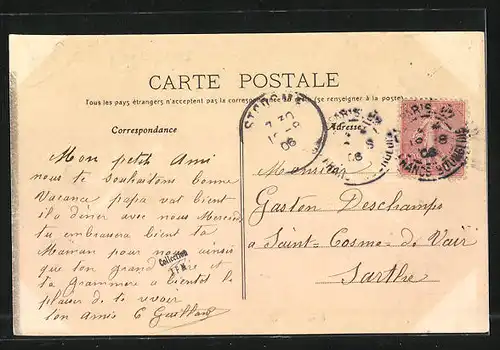 CARTE POSTALE
Tous les pays étrangers n'acceptent pas la correspondance au (se renseigner à la poste)
Correspondance
Adresse
Mon petit Ami
nous te Souhaitons bonne
Vacance papa vat bient
il a diner avec nous Mercredi
tu embrasera bient ta
Maman pour nous ainsi
que ton grand et
ta grammere a bientot le
plaisir de te voir
ton amie
Monsieur
Gaston Deschamps
a Saint-Cosme-de-Vair
Sarthe
7 30
06
PARIS
06
PARIS
06
FRANCE
Collection